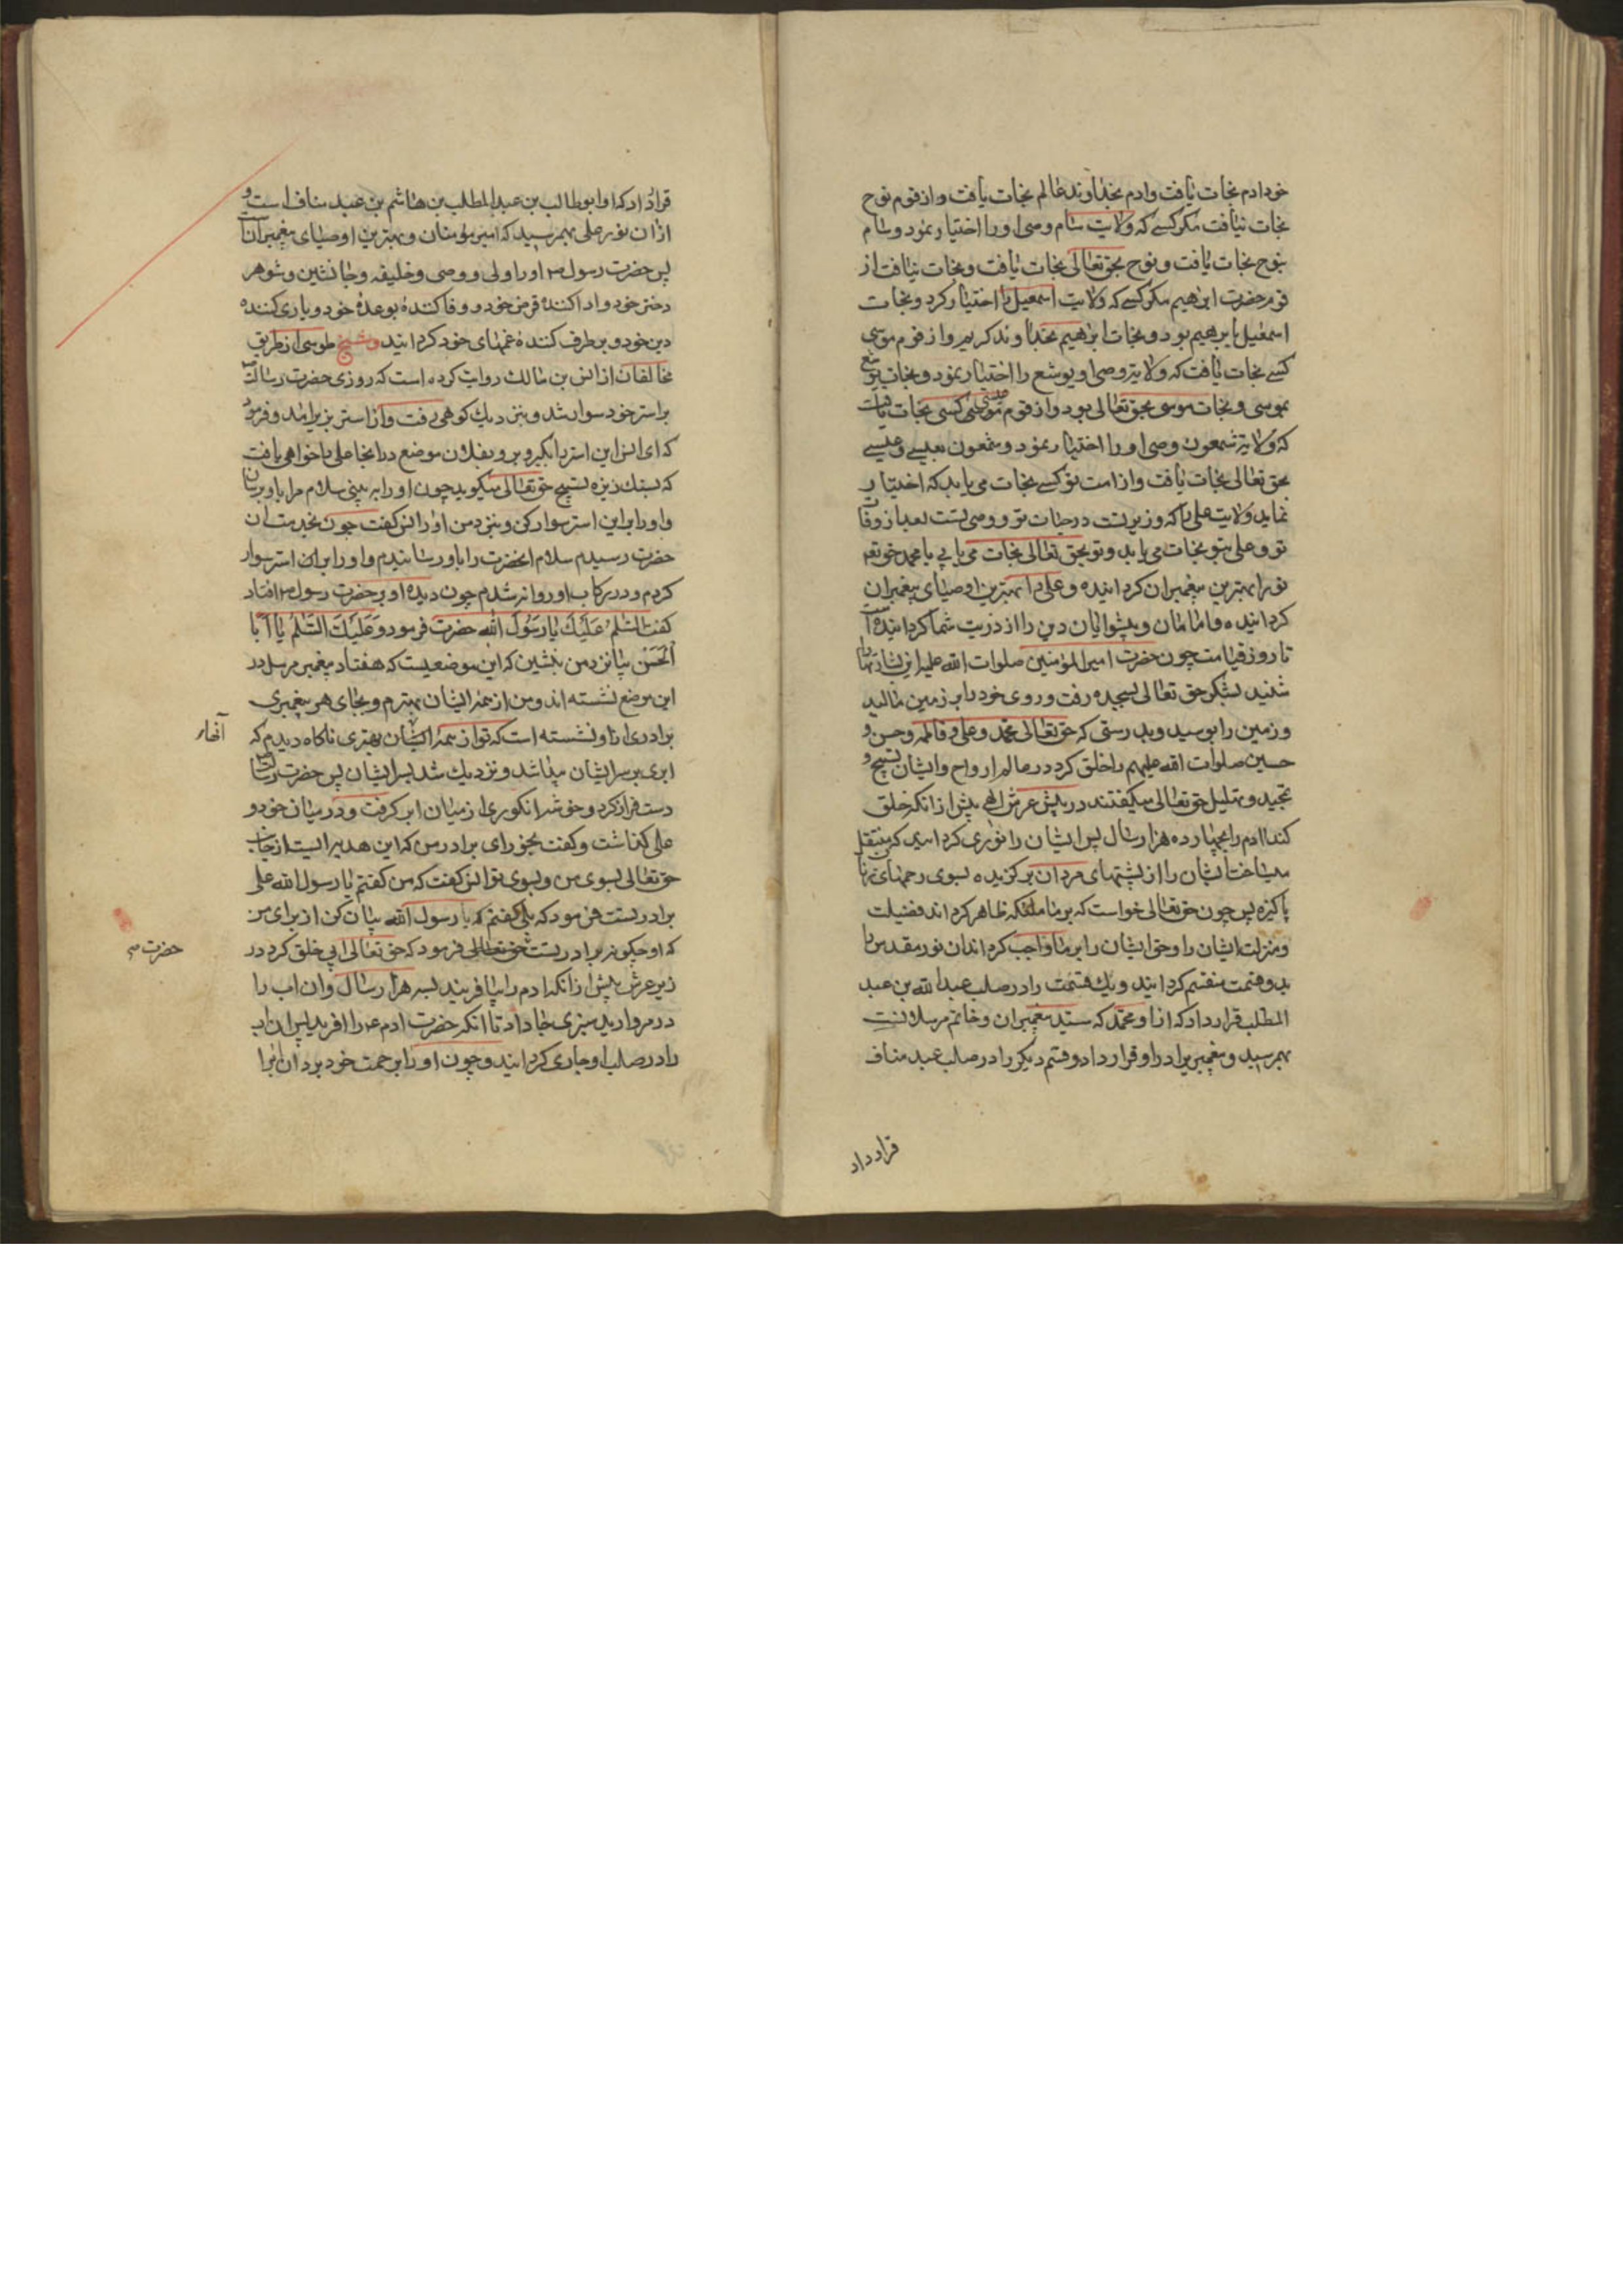 خود ادم نجات یافت وادم بخداوند عالم نجات یافت واز قوم نوح
نجات نیافت مکر کسے که ولایت سام وصی او را اختیار نمود وسام
بنوح نجات یافت ونوح بحق تعالی نجات یافت ونجات نیافت از
قوم حضرت ابرهیم مکر کسے که ولایت اسمعیل را اختیار کرد ونجات
اسمعیل بابرهیم بود ونجات ابرهیم بخداوند کریم واز قوم موسی
کسے نجات یافت که ولایت وصی او یوشع را اختیار نمود ونجات یوشع
بموسی ونجات موسی بحق تعالی بود واز قوم عیسی کسی نجات یافت
که ولایت شمعون وصی او را اختیار نمود وشمعون بعیسے وعیسے
بحق تعالی نجات یافت واز امت تو کسے نجات می یابد که اختیار
نماید ولایت علی را که وزیر تست در حیات تو ووصی تست بعد از وفات
تو وعلی بتو نجات می یابد وتو بحق تعالی نجات می یابی یا محمد حق تعم
تو را بهترین پیغمبران کردانیده وعلی را بهترین اوصیای پیغمبران
کردانیده وامامان وپیشوایان دین را از ذریت شما کردانیده است
تا روز قیامت چون حضرت امیر المؤمنین صلوات الله علیه این بشارتها را
شنید بشکر حق تعالی بسجده رفت وروی خود را بر زمین مالید
وزمین را بوسید وبدرستی که حق تعالی محمد وعلی وفاطمه وحسن و
حسین صلوات الله علیهم را خلق کرد در عالم ارواح وایشان تسبیح و
تمجید وتهلیل حق تعالی میکفتند در پیش عرش الهی پیش از انکه خلق
کند ادم را بچهارده هزار سال پس ایشان را نوری کردانید که منتقل
میساخت ایشان را از پشتهای مردان برکزیده بسوی رحمهای زنان
پاکیزه پس چون حق تعالی خواست که بر ما ملئکه ظاهر کرداند فضیلت
ومنزلت ایشان را وحق ایشان را بر ما واجب کرداند ان نور مقدس را
بدو قسمت منقسم کردانید ویک قسمت را در صلب عبد الله بن عبد
المطلب قرار داد که از او محمد که سید پیغمبران وخاتم مرسلان است
بهم رسید وپیغمبری را در او قرار داد وقسم دیکر را در صلب عبد مناف
قرار داد
قرار داد که او ابوطالب بن عبد المطلب بن هاشم بن عبد مناف است و
از ان نور علی بهم رسید که امیر مومنان وبهترین اوصیای پیغمبران است
پس حضرت رسول ص او را ولی ووصی وخلیفه وجانشین وشوهر
دختر خود وادا کنندۀ قرض خود ووفا کنندۀ بوعدۀ خود ویاری کننده
دین خود وبرطرف کنندۀ غمهای خود کردانید وشیخ طوسی از طریق
مخالفان از انس بن مالک روایت کرده است که روزی حضرت رسالت ص
بر استر خود سوار شد وبنزدیک کوهی رفت واز استر بزیر امد وفرمود
که ای انس این استر را بکیر وبرو بفلان موضع در انجا علی را خواهی یافت
که بسنک ریزه تسبیح حق تعالی میکوید چون او را ببینی سلام مرا باو برسان
واو را بر این استر سوار کن وبنزد من اور انس کفت چون بخدمت ان
حضرت رسیدم سلام انحضرت را باو رسانیدم واو را بر ان استر سوار
کردم ودر رکاب او روانه شدم چون دیدۀ او بر حضرت رسول ص افتاد
کفت السَّلٰمُ عَلَیْکَ یَا رَسُولَ اللّه حضرت فرمود وَعَلَیْکَ السَّلٰمُ یَا اَبَا
اَلْحَسَن بیا نزد من بنشین که این موضعیست که هفتاد پیغمبر مرسل در
این موضع نشسته اند ومن از همۀ ایشان بهترم وبجای هر پیغمبری
برادری از او نشسته است که تو از همۀ ایشان بهتری ناکاه دیدم که
آنجا
ابری بر سر ایشان پیدا شد ونزدیک شد بسر ایشان پس حضرت رسالت
دست فراز کرد وخوشۀ انکوری از میان ابر کرفت ودر میان خود و
علی کذاشت وکفت بخور ای برادر من که این هدیه ایست از جانب
حق تعالی بسوی من وبسوی تو انس کفت که من کفتم یا رسول الله علی
برادر تست فرمود که بلی کفتم که یا رسول الله بیان کن از برای من
که او چکونه برادر تست حق تعالی فرمود که حق تعالی ابی خلق کرد در
حضرت ص
زیر عرش پیش از انکه ادم را بیافریند بسه هزار سال وان اب را
در مروارید سبزی جا داد تا انکه حضرت ادم ع را افرید پس ان اب
را در صلب او جاری کردانید وچون او را برحمت خود برد ان را